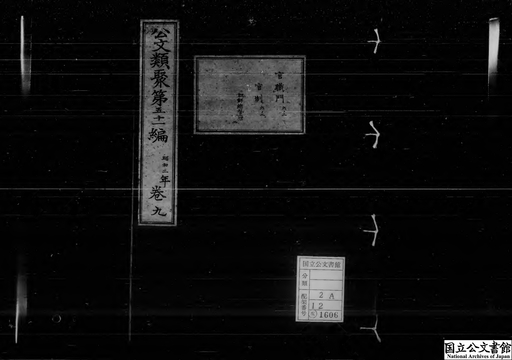 公文類聚第五十一編 昭和二年 巻九
官職門
官制
国立公文書館
分類
配架番号
2 A
12
1606
国立公文書館
National Archives of Japan